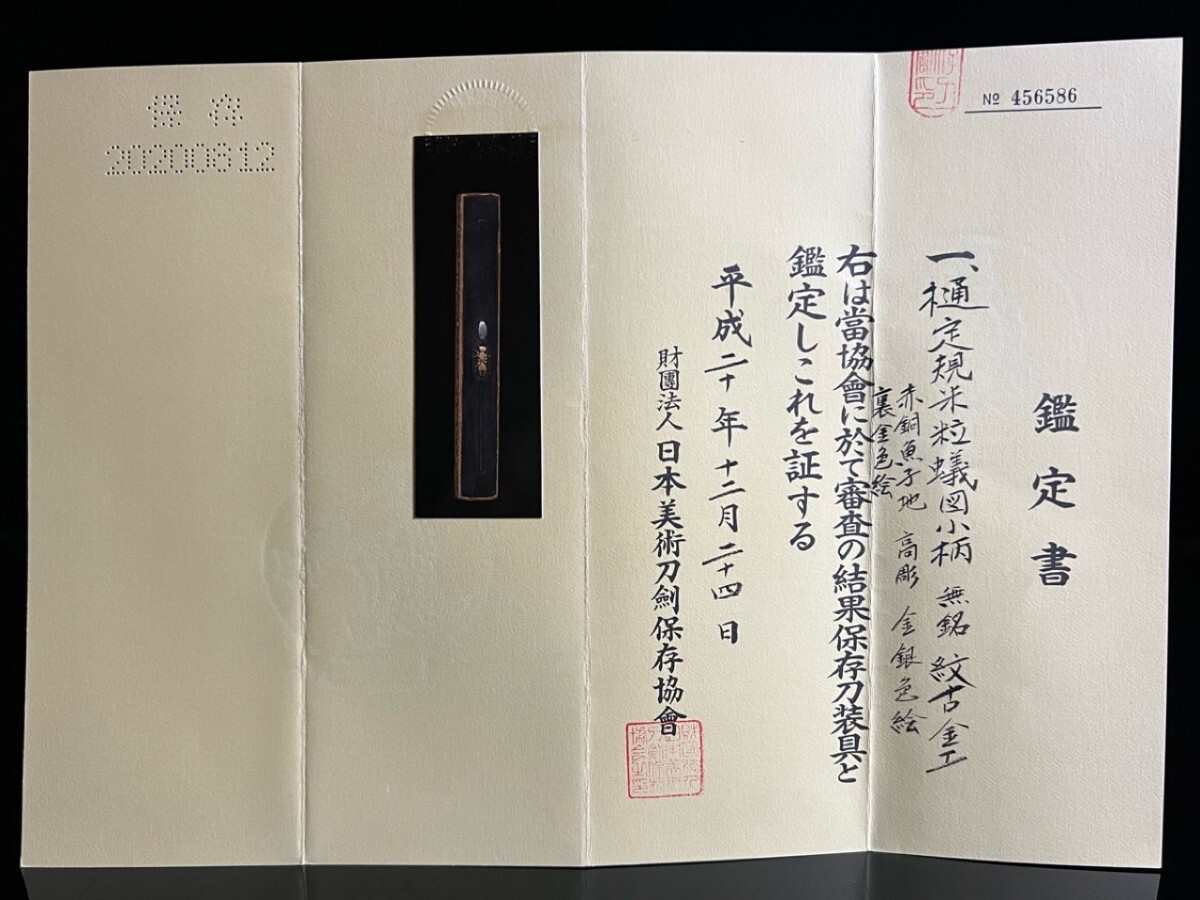 № 456586
鑑定書
一、樋定規米粒蟻図小柄 無銘 紋古金工
赤銅魚子地 高彫 金銀色絵
裏金色絵
右は當協會に於て審査の結果保存刀装具と
鑑定しこれを証する
平成二十年十二月二十四日
財團法人 日本美術刀劍保存協會
保存
20200612